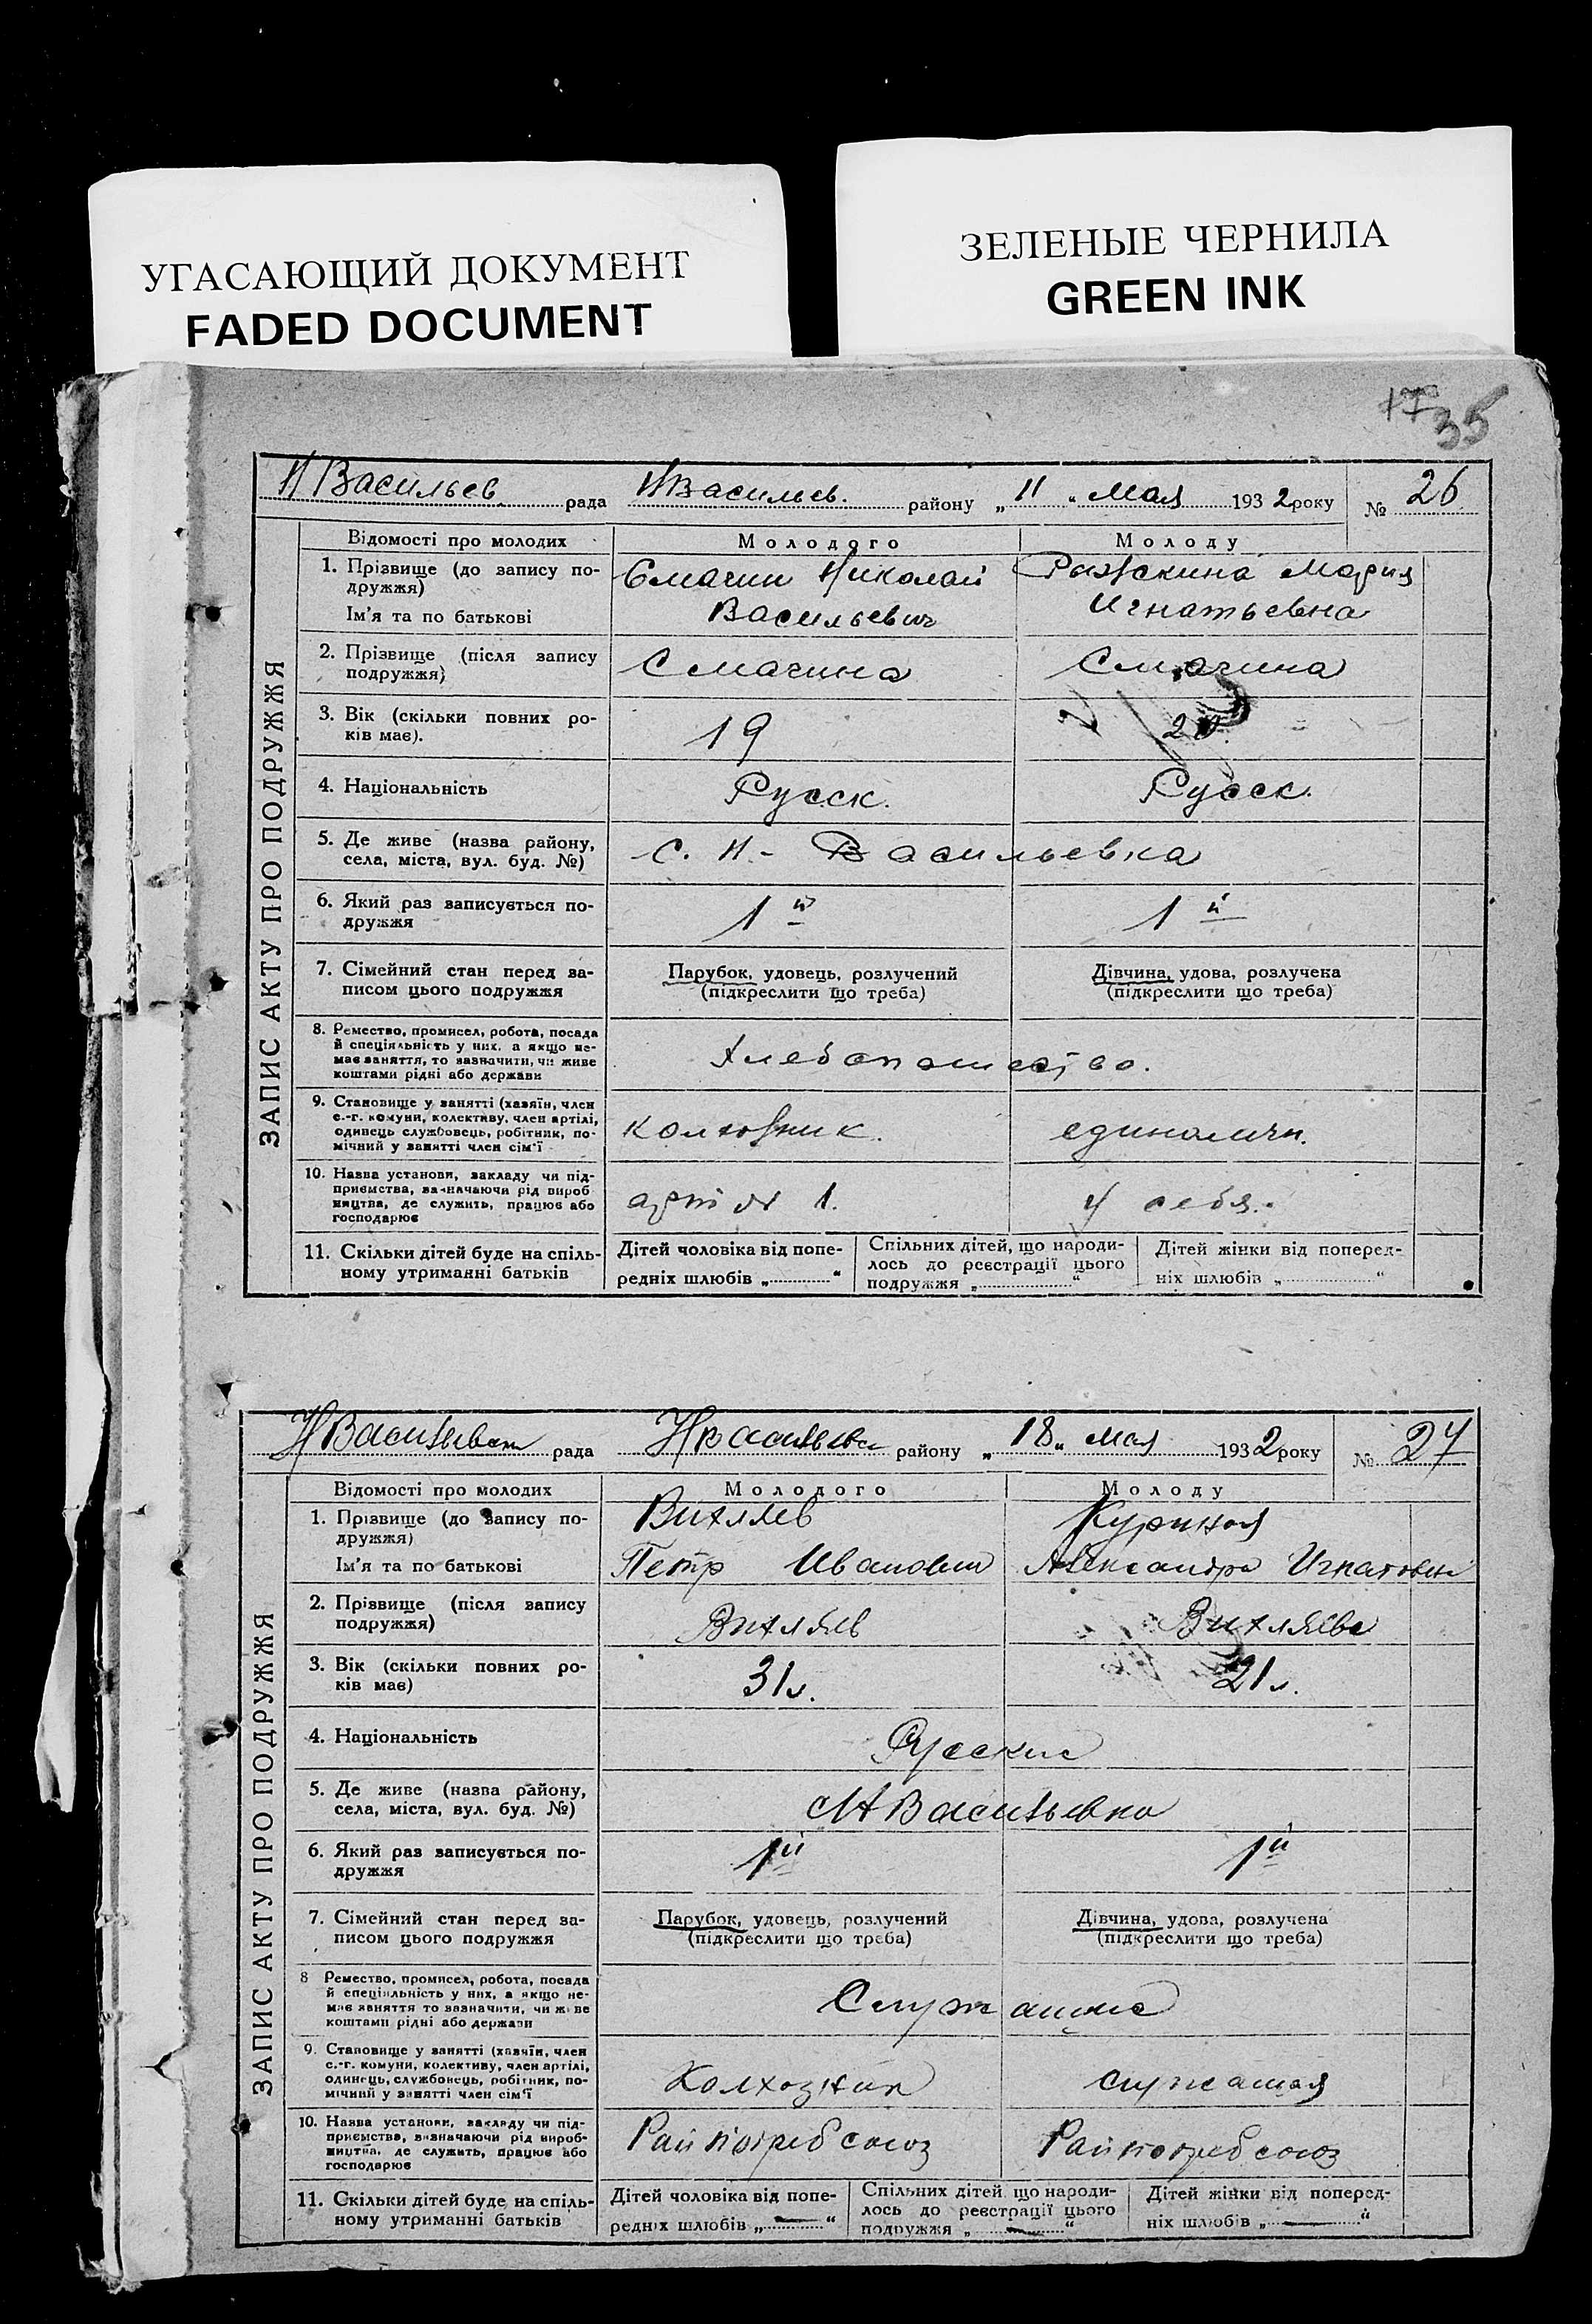 УГАСАЮЩИЙ ДОКУМЕНТ
FADED DOCUMENT
ЗЕЛЕНЫЕ ЧЕРНИЛА
GREEN INK
17 35
ЗАПИС АКТУ ПРО ПОДРУЖЖЯ
Н Васильев рада НВасильев. району „ 11 " мая 1932 року № 26
Відомості про молодих Молодого Молоду
1. Прізвище (до запису по- Смачин Николай Мария
дружжя)
Ім’я та по батькові Васильевич Игнатьевна
2. Прізвище (після запису Смачина Смачина
подружжя)
3. Вік (скільки повних ро- 19 20
ків має).
4. Національність Русск. Русск.
5. Де живе (назва району, с. Н - Васильевка
села, міста, вул. буд. №)
6. Який раз записується по- 1й 1й
дружжя
7. Сімейний стан перед за- Парубок, удовець, розлучений Дівчина, удова, розлучена
писом цього подружжя (підкреслити що треба) (підкреслити що треба)
8. Ремество, промисел, робота, посада
й спеціяльність у них, а якщо не- Хлебопашество.
має заняття, то зазначити, чи живе
коштами рідні або держави
9. Становище у занятті (хазяїн, член
с.-г. комуни, колективу, член артілі, колхозник. единоличн.
одинець службовець, робітник, по-
мічний у занятті член сім’ї
10. Назва установи, закладу чи під-
приємства, зазначаючи рід вироб
ництва, де служить, працює або 1. у себя.
господарює
11. Скільки дітей буде на спіль- Дітей чоловіка від попе- Спільних дітей, що народи- Дітей жінки від поперед-
ному утриманні батьків редніх шлюбів „ “ лось до реєстрації цього ніх шлюбів „ “
подружжя „ “
ЗАПИС АКТУ ПРО ПОДРУЖЖЯ
рада району „ 18 „ мая 1932 року № 27
Відомості про молодих Молодого Молоду
1. Прізвище (до запису по- Вихляев Куриная
дружжя)
Ім’я та по батькові Петр Иванович Александра
2. Прізвище (після запису Вихляев Вихляева
подружжя)
3. Вік (скільки повних ро- 31л. 21л.
ків має)
4. Національність Русские
5. Де живе (назва району, Васильевка
села, міста, вул. буд. №)
6. Який раз записується по- 1й 1й
дружжя
7. Сімейний стан перед за- Парубок, удовець, розлучений Дівчина, удова, розлучена
писом цього подружжя (підкреслити що треба) (підкреслити що треба)
8 Ремество, промисел, робота, посада
й спеціяльність у них, а якщо не- Служащие
має заняття то зазначити, чи живе
коштами рідні або держави
9. Становище у занятті (хазяїн, член
с.-г. комуни, колективу, член артілі,
одинець, службовець, робітник, по- Колхозник служащая
мічний у занятті член сім’ї
10. Назва установи, закладу чи під-
приємства, зазначаючи рід вироб- Райпотребсоюз Райпотребсоюз
ництва, де служить, працює або
господарює
11. Скільки дітей буде на спіль- Дітей чоловіка від попе- Спільних дітей що народи- Дітей жінки від поперед-
ному утриманні батьків редніх шлюбів „ — “ лось до реєстрації цього ніх шлюбів „ — “
подружжя „ — “